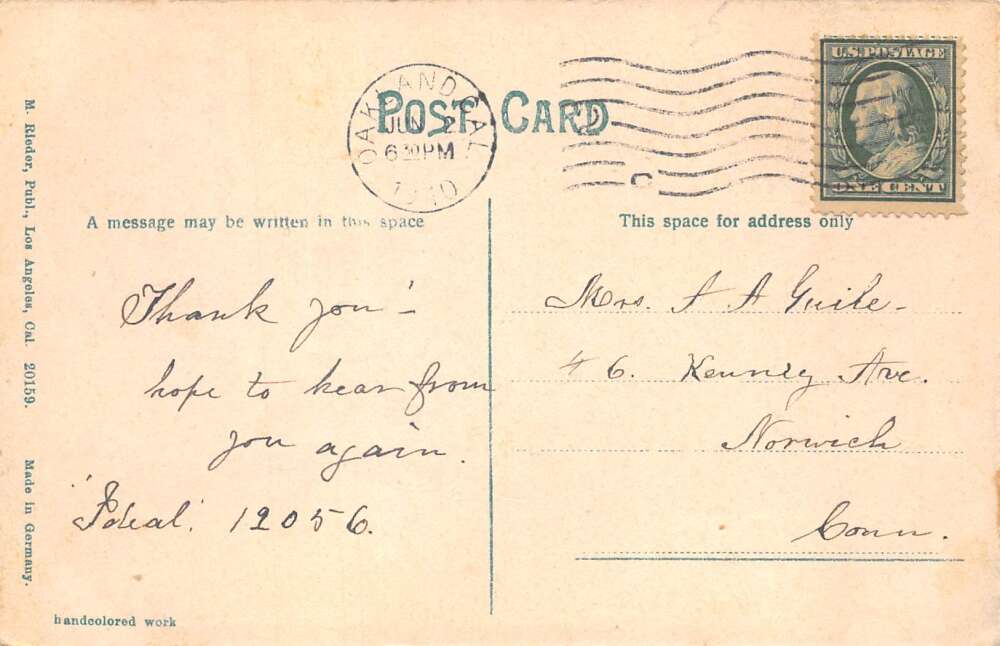 POST CARD
OAKLAND, CAL.
JUN 2
6 30 PM
1910
C
U.S. POSTAGE
ONE CENT
A message may be written in this space
This space for address only
Thank you! –
hope to hear from
you again.
"Ideal" 12056.
Mrs. A A Guile –
# 6. Kenney Ave.
Norwich
Conn.
M. Rieder, Publ., Los Angeles, Cal. 20159. Made in Germany.
handcolored work